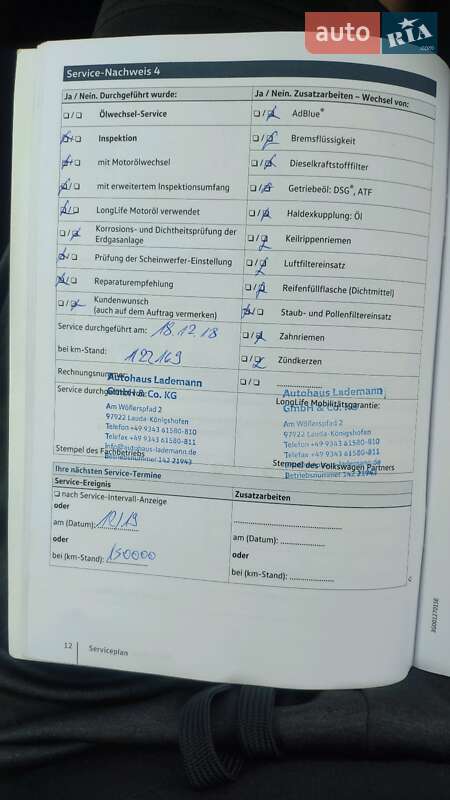 auto RIA .com
Service-Nachweis 4
Ja / Nein. Durchgeführt wurde:
❏ / ❏ Ölwechsel-Service
Inspektion
mit Motorölwechsel
mit erweitertem Inspektionsumfang
LongLife Motoröl verwendet
Korrosions- und Dichtheitsprüfung der
Erdgasanlage
Prüfung der Scheinwerfer-Einstellung
Reparaturempfehlung
Kundenwunsch
(auch auf dem Auftrag vermerken)
Service durchgeführt am: 18.12.18
bei km-Stand: 122169
Rechnungsnummer:
Service durchgeführt
Autohaus Lademann
GmbH & Co. KG
Am Wöllerspfad 2
97922 Lauda-Königshofen
Telefon +49 9343 61580-810
Telefax +49 9343 61580-811
info@autohaus-lademann.de
Betriebsnummer 142 21943
Stempel des Fachbetriebs
Ja / Nein. Zusatzarbeiten – Wechsel von:
AdBlue®
Bremsflüssigkeit
Dieselkraftstofffilter
Getriebeöl: DSG®, ATF
Haldexkupplung: Öl
Keilrippenriemen
Luftfiltereinsatz
Reifenfüllflasche (Dichtmittel)
Staub- und Pollenfiltereinsatz
Zahnriemen
Zündkerzen
❏ / ❏ ....................
Autohaus Lademann
LongLife Mobilitätsgarantie:
GmbH & Co. KG
Am Wöllerspfad 2
97922 Lauda-Königshofen
Telefon +49 9343 61580-810
Telefax +49 9343 61580-811
Stempel des Volkswagen Partners
Betriebsnummer 142 21943
Ihre nächsten Service-Termine
Service-Ereignis
❏ nach Service-Intervall-Anzeige
oder
am (Datum): 12/19
oder
bei (km-Stand): 150000
Zusatzarbeiten
am (Datum):....................
oder
bei (km-Stand): ....................
12 Serviceplan
3G0012701SE